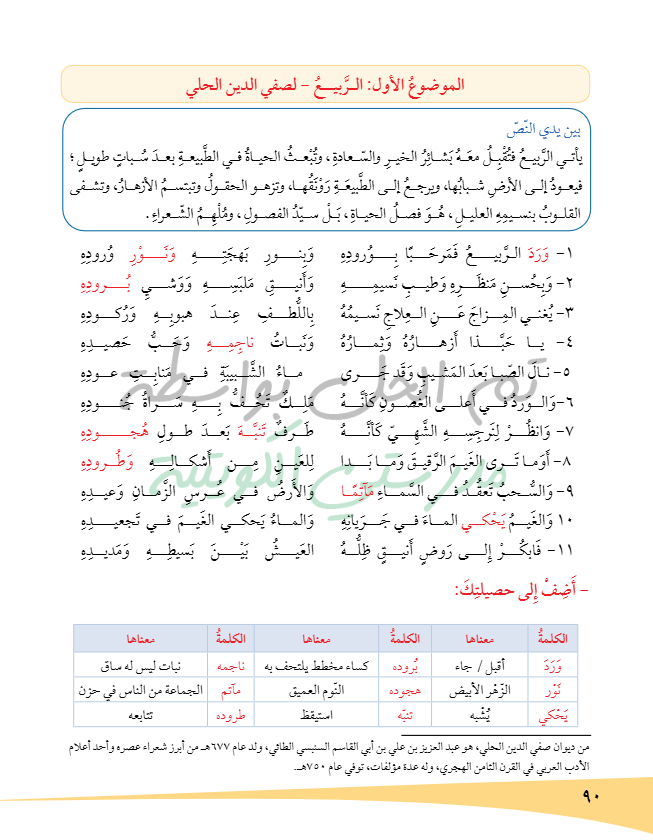 الموضوعُ الأول: الـرَّبيــعُ – لصفي الدين الحلي
بين يدي النّصّ
يأتـي الرَّبيعُ فتُقْبِـلُ معَـهُ بَشـائِرُ الخيـرِ والسّـعادةِ، وتُبْعـثُ الحيـاةُ فـي الطَّبيعـةِ بعـدَ سُبـاتٍ طويـلٍ؛
فيعـودُ إلـى الأرضِ شبـابُها، ويرجـعُ إلـى الطَّبيعَـةِ رَوْنَقُهـا، وتزهـو الحقـولُ وتبتسـمُ الأزهـارُ، وتشـفى
القلـوبُ بنسـيمِهِ العليـلِ، هُـوَ فصـلُ الحيـاةِ، بَـلْ سيّـدُ الفصـولِ، ومُلْهِـمُ الشّـعراءِ.
١- وَرَدَ الـرَّبيـــعُ فَمَرحَبًـــا بِـــوُرودِهِ وَبِنـــورِ بَهجَتِـــهِ وَنَـــوْرِ وُرودِهِ
٢- وَبِحُسنِ مَنظَـرِهِ وَطيـبِ نَسيمِـــهِ وَأَنيـــقِ مَلبَسِـــهِ وَوَشـيِ بُـــرودِهِ
٣- يُغنـي المِـزاجَ عَــنِ العِـلاجِ نَسيمُهُ بِاللُّطـــفِ عِنـدَ هبوبِـــهِ وَرُكـــودِهِ
٤- يـــا حَبَّـــذا أَزهـــارُهُ وَثِمـــارُهُ وَنَبـــاتُ ناجِمِـــهِ وَحَـــبُّ حَصيـدِهِ
٥- نـالَ الصِّبا بَعدَ المَشيبِ وَقَد جَـــرى مـــاءُ الشَّبيبَةِ فـــي مَنابِـتِ عـودِهِ
٦- وَالـوَردُ فـي أَعلـى الغُصُـونِ كَأَنَّـــهُ مَلِـكٌ تَحُـفُّ بِـــهِ سَـــراةُ جُنـــودِهِ
٧- وَانظُـــرْ لِنَرجِسِـهِ الشَّهـيِّ كَأَنَّـــهُ طَـرفٌ تَنَبَّـهَ بَعـدَ طـولِ هُجـــودِهِ
٨- أَوَمـا تـرى الغَيـمَ الرَّقيـقَ وَمـا بَـــدا لِلعَيـنِ مِـــن أَشكـالِـــهِ وَطُـرودِهِ
٩- وَالسُّـحبُ تَعقُـدُ فـي السَّمـاءِ مَآتِمًـا وَالأَرضُ فـي عُـرسِ الزَّمـانِ وَعيـدِهِ
١٠ وَالغَيـمُ يَحْكـي المـاءَ فـي جَرَيانِهِ وَالمـاءُ يَحكـي الغَيـمَ فـي تَجعيـدِهِ
١١- فَابكُـرْ إِلـى رَوضٍ أَنيـقٍ ظِلُّـــهُ العَيـشُ بَيْـــنَ بَسيطِـــهِ وَمَديـدِهِ
– أَضِفْ إِلى حصيلتِكَ:
الكلمةُ معناها الكلمةُ معناها الكلمةُ معناها
وَرَدَ أقبل / جاء بُروده كساء مخطط يلتحف به ناجمه نبات ليس له ساق
نَوْر الزَّهْر الأبيض هجوده النّوم العميق مآتم الجماعة من الناس في حزن
يَحْكي يُشْبه تنبّه استيقظ طروده تتابعه
من ديوان صفي الدين الحلي، هو عبد العزيز بن علي بن أبي القاسم السنبسي الطائي، ولد عام ٦٧٧هـ من أبرز شعراء عصره وأحد أعلام
الأدب العربي في القرن الثامن الهجري، وله عدة مؤلفات، توفي عام ٧٥٠هـ.
٩٠
تم الحل بواسطة
مدرستي الكويتية